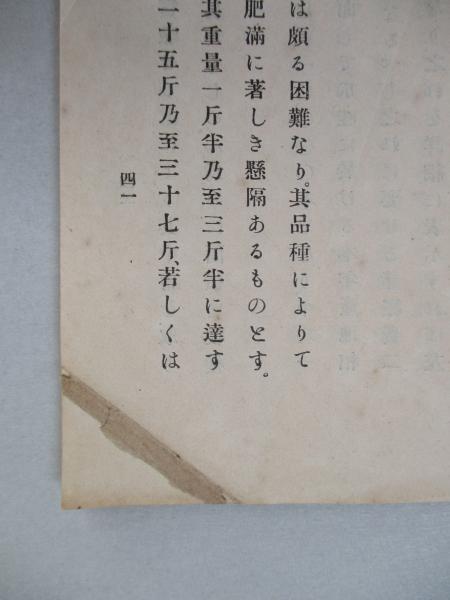 は頗る困難なり。其品種によりて
肥滿に著しき懸隔あるものとす。
其重量一斤半乃至三斤半に達す
二十五斤乃至三十七斤、若しくは
四一